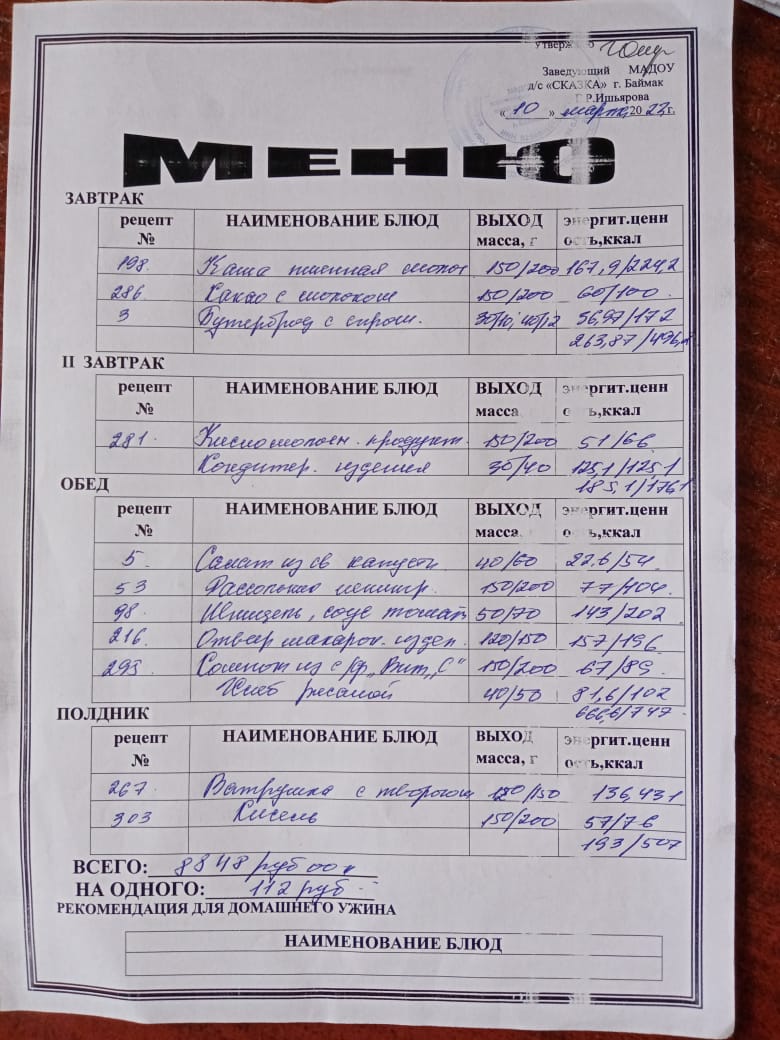 Утвержено
Заведующий МАДОУ
д/с «СКАЗКА» г. Баймак
Г.Р.Ишьярова
«10» марта 2022г.
МЕНЮ
ЗАВТРАК
рецепт № НАИМЕНОВАНИЕ БЛЮД ВЫХОД масса, г энергит.ценн ость,ккал
198. Каша пшенная молоч 150/200 167,9/224,2
286. Какао с молоком 150/200 60/100
3 Бутерброд с сыром. 30/10; 40/12 56,97/172
263,87/496,2
II ЗАВТРАК
рецепт № НАИМЕНОВАНИЕ БЛЮД ВЫХОД масса, энергит.ценн ость,ккал
281. Кисломолочн. продукт. 150/200 51/66
Кондитер. изделия 30/40 125,1/125,1
185,1/176,1
ОБЕД
рецепт № НАИМЕНОВАНИЕ БЛЮД ВЫХОД масса, энергит.ценн ость,ккал
5. Салат из св капусты 40/60 22,6/54
53 Рассольник ленингр. 150/200 77/104
98. Шницель, соус томатн 50/70 143/202
216. Отвар макарон. издел. 120/150 157/196
293. Компот из с/фр „Вит „С" 150/200 67/89
Хлеб ржаной 40/50 81,6/102
666,6/747
ПОЛДНИК
рецепт № НАИМЕНОВАНИЕ БЛЮД ВЫХОД масса, г энергит.ценн ость,ккал
267. Ватрушка с творогом 120/150 136,431
303 Кисель 150/200 57/76
193/507
ВСЕГО: 8848 руб 00 к
НА ОДНОГО: 112 руб
РЕКОМЕНДАЦИЯ ДЛЯ ДОМАШНЕГО УЖИНА
НАИМЕНОВАНИЕ БЛЮД